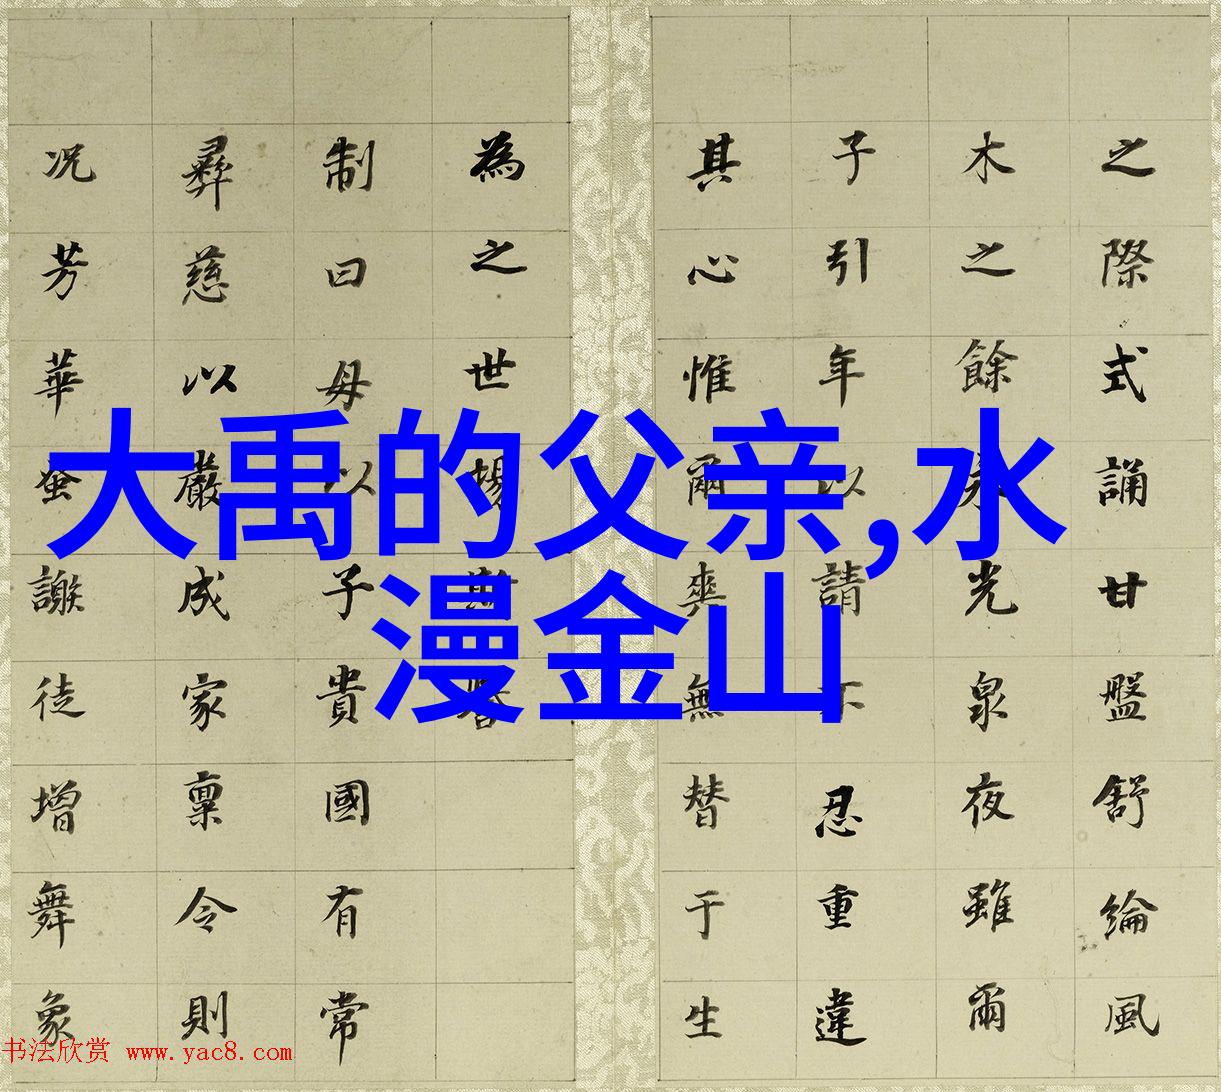 之際式誦甘盤舒綸風
木之餘光泉夜雖爾
子引年以請不忍重違
其心惟爾爽無替于生
為之世
制曰母以子貴國有常
彝慈以嚴成家稟令則
况芳華蚤謝徒增舞象
大禹的父亲,水
漫金山
书法欣赏 www.yac8.com